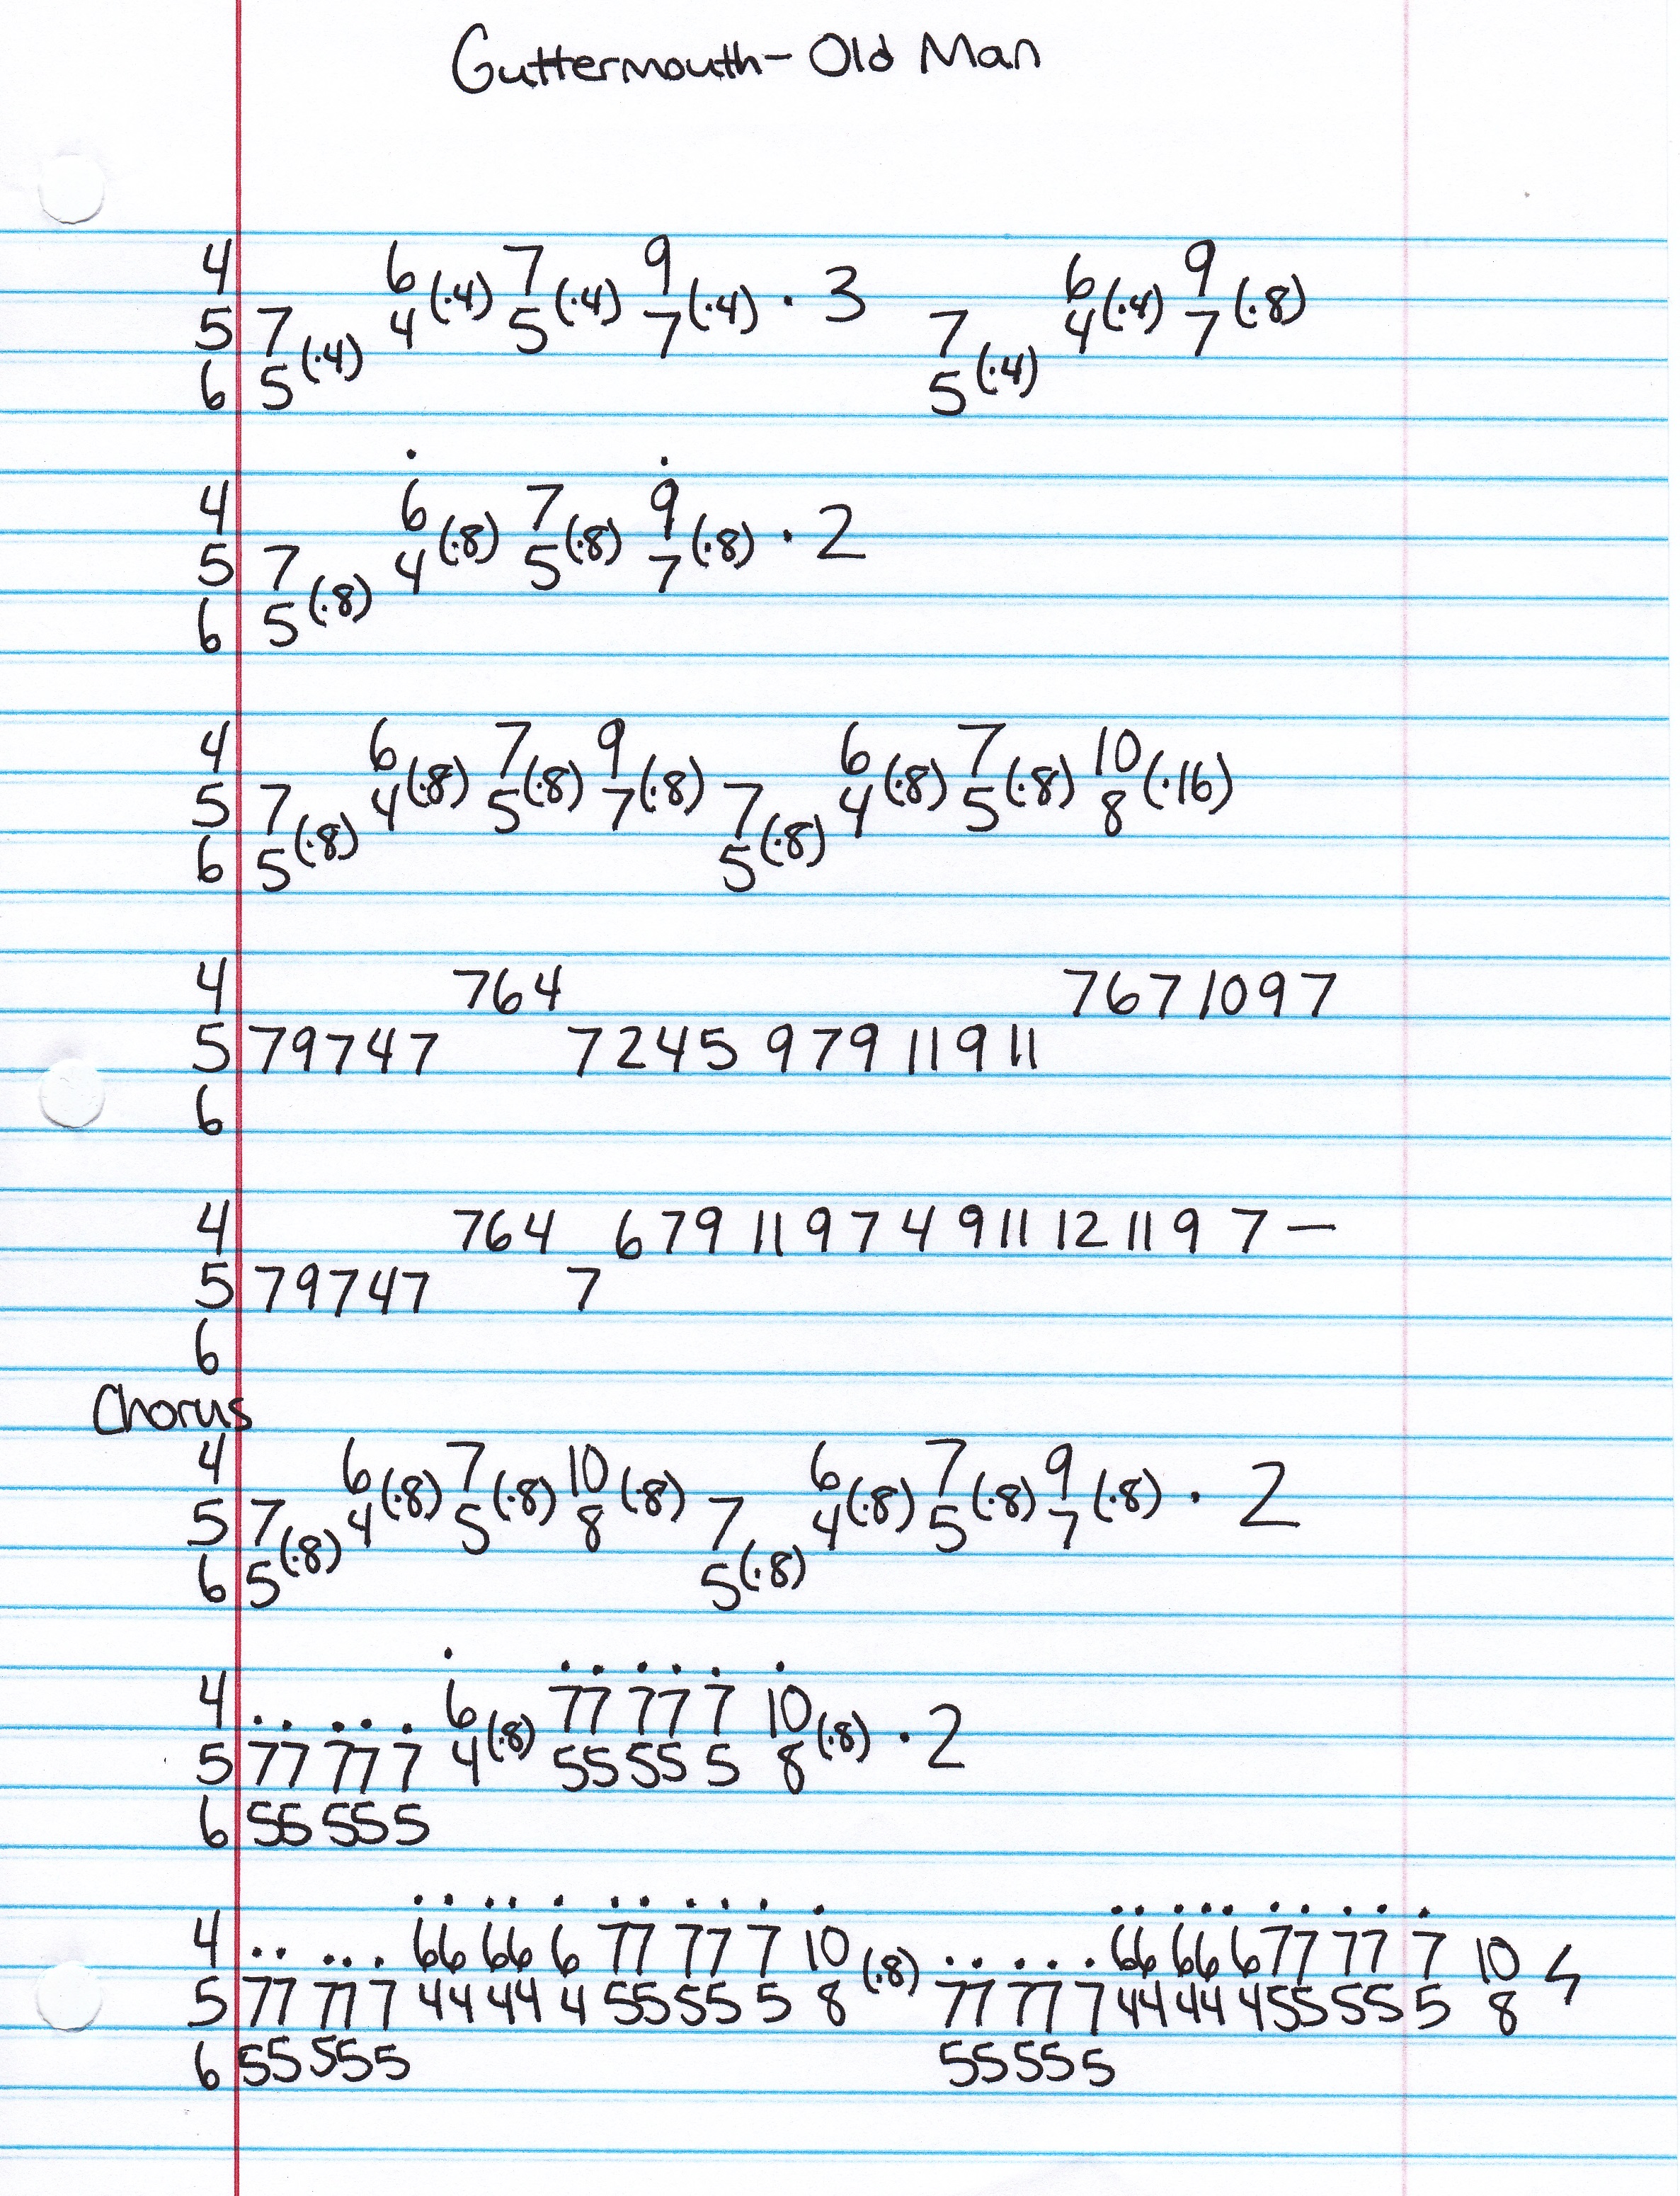 Guttermouth - Old Man
4 6 (·4) 7 (·4) 9 (·4) · 3 6 (·4) 9 (·8)
5 7 (·4) 4 5 7 7 4 7
6 5 5 (·4)
4 6 (·8) 7 (·8) 9 (·8) · 2
5 7 4 5 7
6 5 (·8)
4 6 (·8) 7 (·8) 9 (·8) 6 (·8) 7 (·8) 10 (·16)
5 7 4 5 7 7 4 5 8
6 5 (·8) 5 (·8)
4 764 767 10 9 7
5 79747 7245 979 11 9 11
6
4 764 679 11 9 7 4 9 11 12 11 9 7 —
5 79747 7
6
Chorus
4 6 (·8) 7 (·8) 10 (·8) 6 (·8) 7 (·8) 9 (·8) · 2
5 7 4 5 8 7 4 5 7
6 5 (·8) 5 (·8)
4 6 (·8) 77 77 7 10 (·8) · 2
5 77 77 7 4 55 55 5 8
6 55 555
4 66 66 6 77 77 7 10 (·8) 66 66 6 77 77 7 10
5 77 77 7 44 44 4 55 55 5 8 77 77 7 44 44 4 55 55 5 8
6 55 555 55 55 5